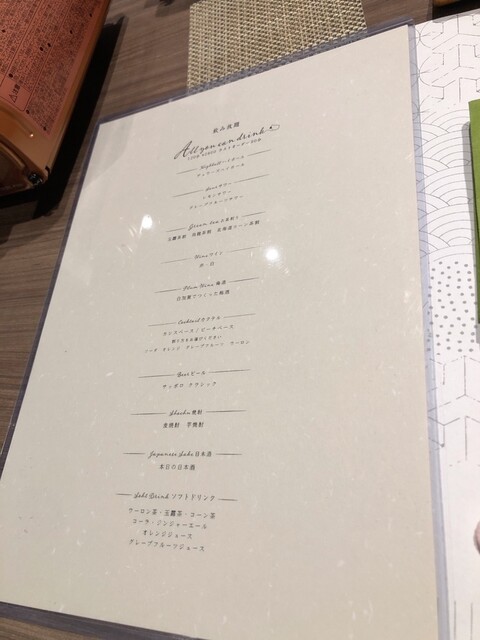 飲み放題
All you can drink
ラストオーダー
Highball ハイボール
Sour サワー
レモンサワー
グレープフルーツサワー
Green tea お茶割り
玉露茶割 烏龍茶割 北海道コーン茶割
Wine ワイン
赤・白
Plum Wine 梅酒
自家製でつくった梅酒
Cocktail カクテル
カシスベース / ピーチベース
割り方をお選びください
ソーダ オレンジ グレープフルーツ ウーロン
Beer ビール
サッポロ クラシック
Shochu 焼酎
麦焼酎 芋焼酎
Japanese Sake 日本酒
本日の日本酒
Soft Drink ソフトドリンク
ウーロン茶・玉露茶・コーン茶
コーラ・ジンジャーエール
オレンジジュース
グレープフルーツジュース